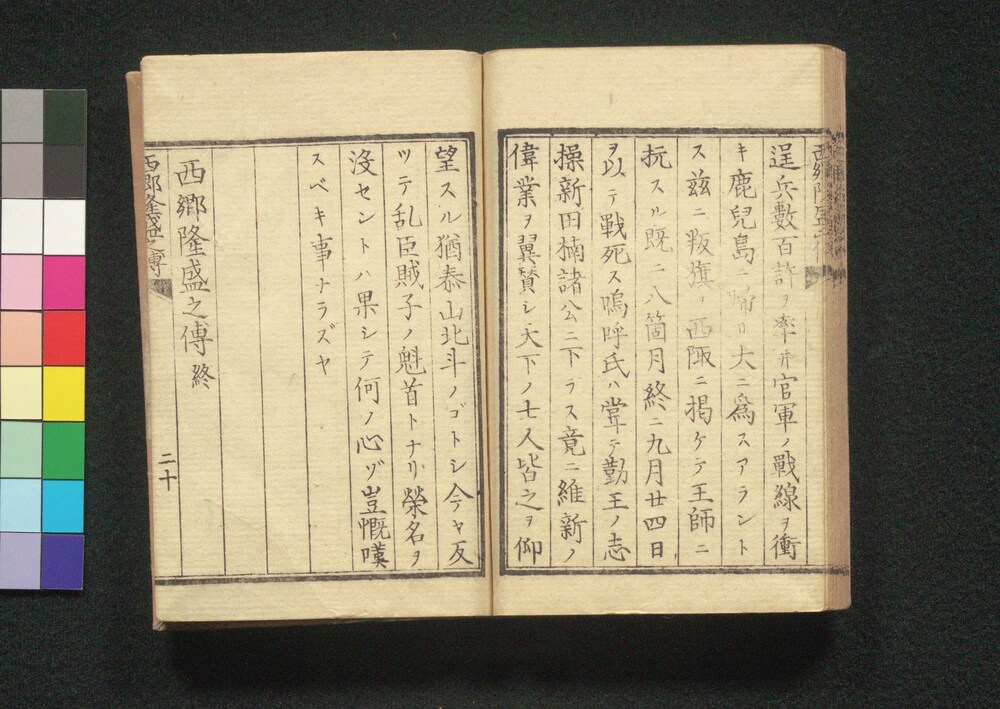 逞兵數百許ヲ率井官軍ノ戰線ヲ衝
キ鹿兒島ニ帰リ大ニ爲スアラント
ス茲ニ叛旗ヲ西陬ニ掲ケテ王師ニ
抗スル既ニ八箇月終ニ九月廿四日
ヲ以テ戰死ス嗚呼氏ハ甞テ勤王ノ志
操新田楠諸公ニ下ラス竟ニ維新ノ
偉業ヲ翼賛シ天下ノ士人皆之ヲ仰
望スル猶泰山北斗ノゴトシ今ヤ反
ツテ乱臣賊子ノ魁首トナリ榮名ヲ
没セントハ果シテ何ノ心ゾ豈慨嘆
スベキ事ナラズヤ
西郷隆盛之傳終
西郷隆盛之傳
二十